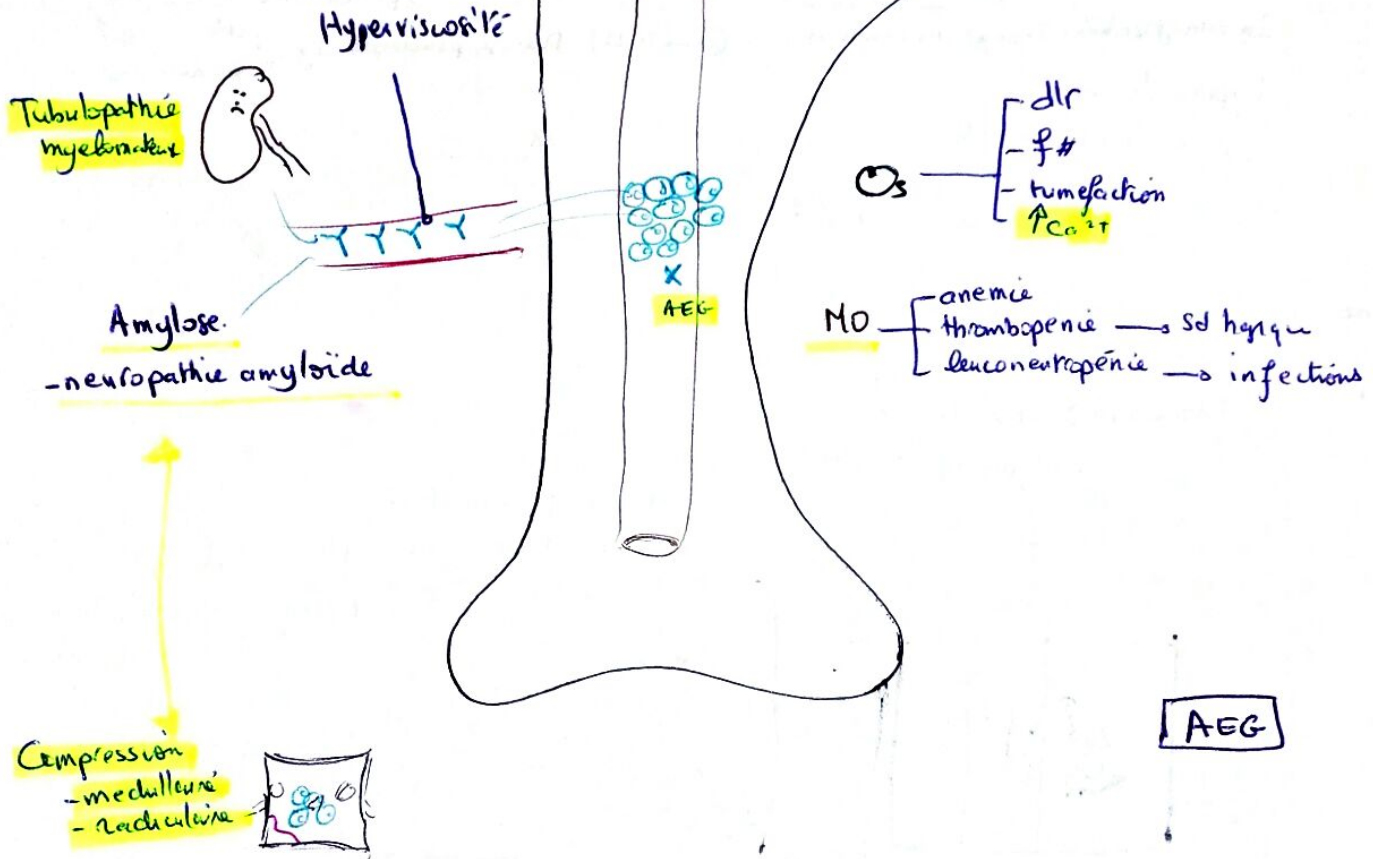 Hyperviscosité
Tubulopathie
myelomateux
Amylose.
- neuropathie amyloïde
AEG
Os
- dlr
- f#
- tumefaction
↑Ca²⁺
MO
- anemie
- thrombopenie → Sd hgique
- leuconeutropénie → infections
Compression
- medullaire
- radiculaire
AEG